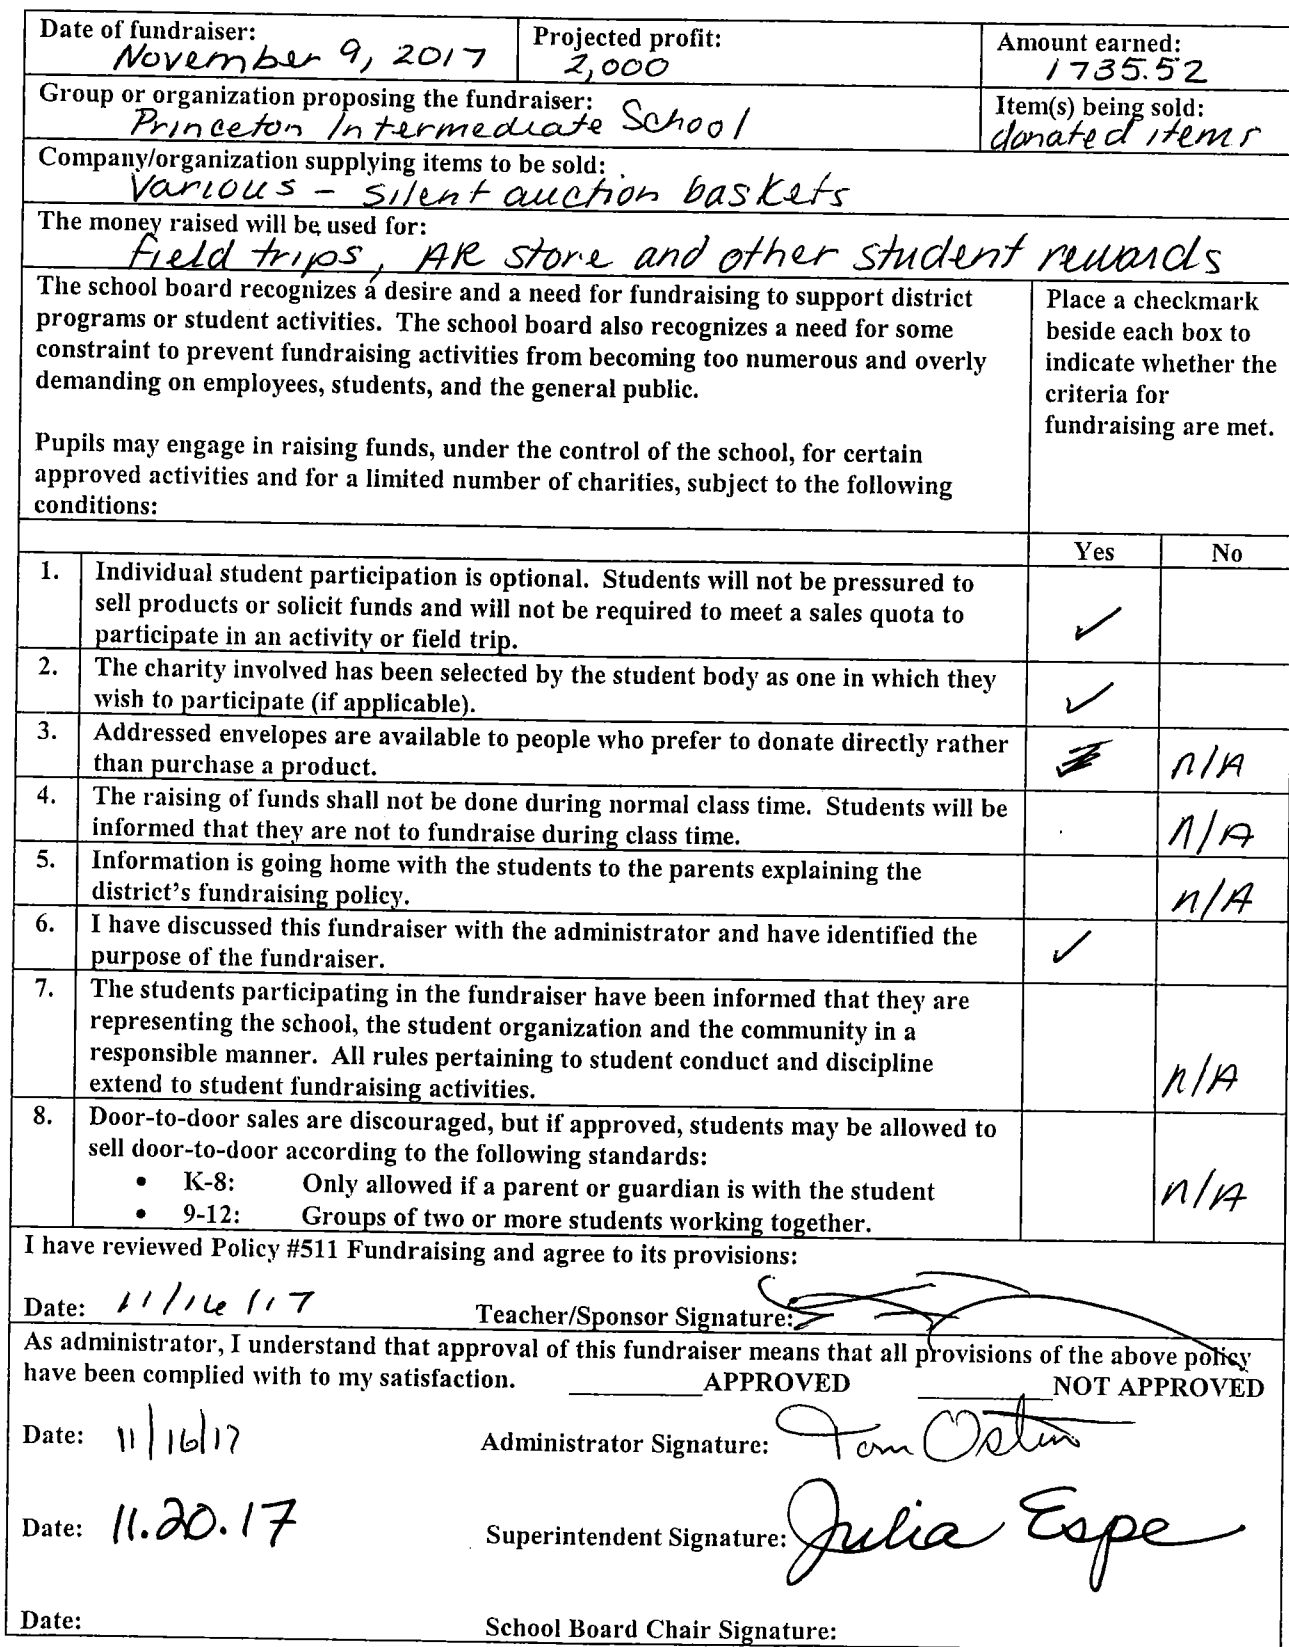 Date of fundraiser: Projected profit: Amount earned:
November 9, 2017 2,000 1735.52
Group or organization proposing the fundraiser: Item(s) being sold:
Princeton Intermediate School donated items
Company/organization supplying items to be sold:
Various - silent auction baskets
The money raised will be used for:
field trips, AR store and other student rewards
The school board recognizes a desire and a need for fundraising to support district
programs or student activities. The school board also recognizes a need for some
constraint to prevent fundraising activities from becoming too numerous and overly
demanding on employees, students, and the general public.
Pupils may engage in raising funds, under the control of the school, for certain
approved activities and for a limited number of charities, subject to the following
conditions:
Place a checkmark
beside each box to
indicate whether the
criteria for
fundraising are met.
Yes No
1. Individual student participation is optional. Students will not be pressured to
sell products or solicit funds and will not be required to meet a sales quota to
participate in an activity or field trip. ✓
2. The charity involved has been selected by the student body as one in which they
wish to participate (if applicable). ✓
3. Addressed envelopes are available to people who prefer to donate directly rather
than purchase a product. n/A
4. The raising of funds shall not be done during normal class time. Students will be
informed that they are not to fundraise during class time. n/A
5. Information is going home with the students to the parents explaining the
district's fundraising policy. n/A
6. I have discussed this fundraiser with the administrator and have identified the
purpose of the fundraiser. ✓
7. The students participating in the fundraiser have been informed that they are
representing the school, the student organization and the community in a
responsible manner. All rules pertaining to student conduct and discipline
extend to student fundraising activities. n/A
8. Door-to-door sales are discouraged, but if approved, students may be allowed to
sell door-to-door according to the following standards:
• K-8: Only allowed if a parent or guardian is with the student
• 9-12: Groups of two or more students working together. n/A
I have reviewed Policy #511 Fundraising and agree to its provisions:
Date: 11/16/17 Teacher/Sponsor Signature:
As administrator, I understand that approval of this fundraiser means that all provisions of the above policy
have been complied with to my satisfaction. ________APPROVED ________NOT APPROVED
Date: 11/16/17 Administrator Signature: Tom Osten
Date: 11.20.17 Superintendent Signature: Julia Espe
Date: School Board Chair Signature: